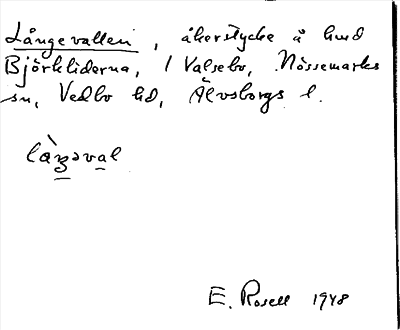 Långevallen, åkerstycke å hmd
Björkliderna, 1 Valsebo, Nössemarks
sn, Vedbo hd, Älvsborgs l.
là̱ŋəva̱l
E. Rosell 1948